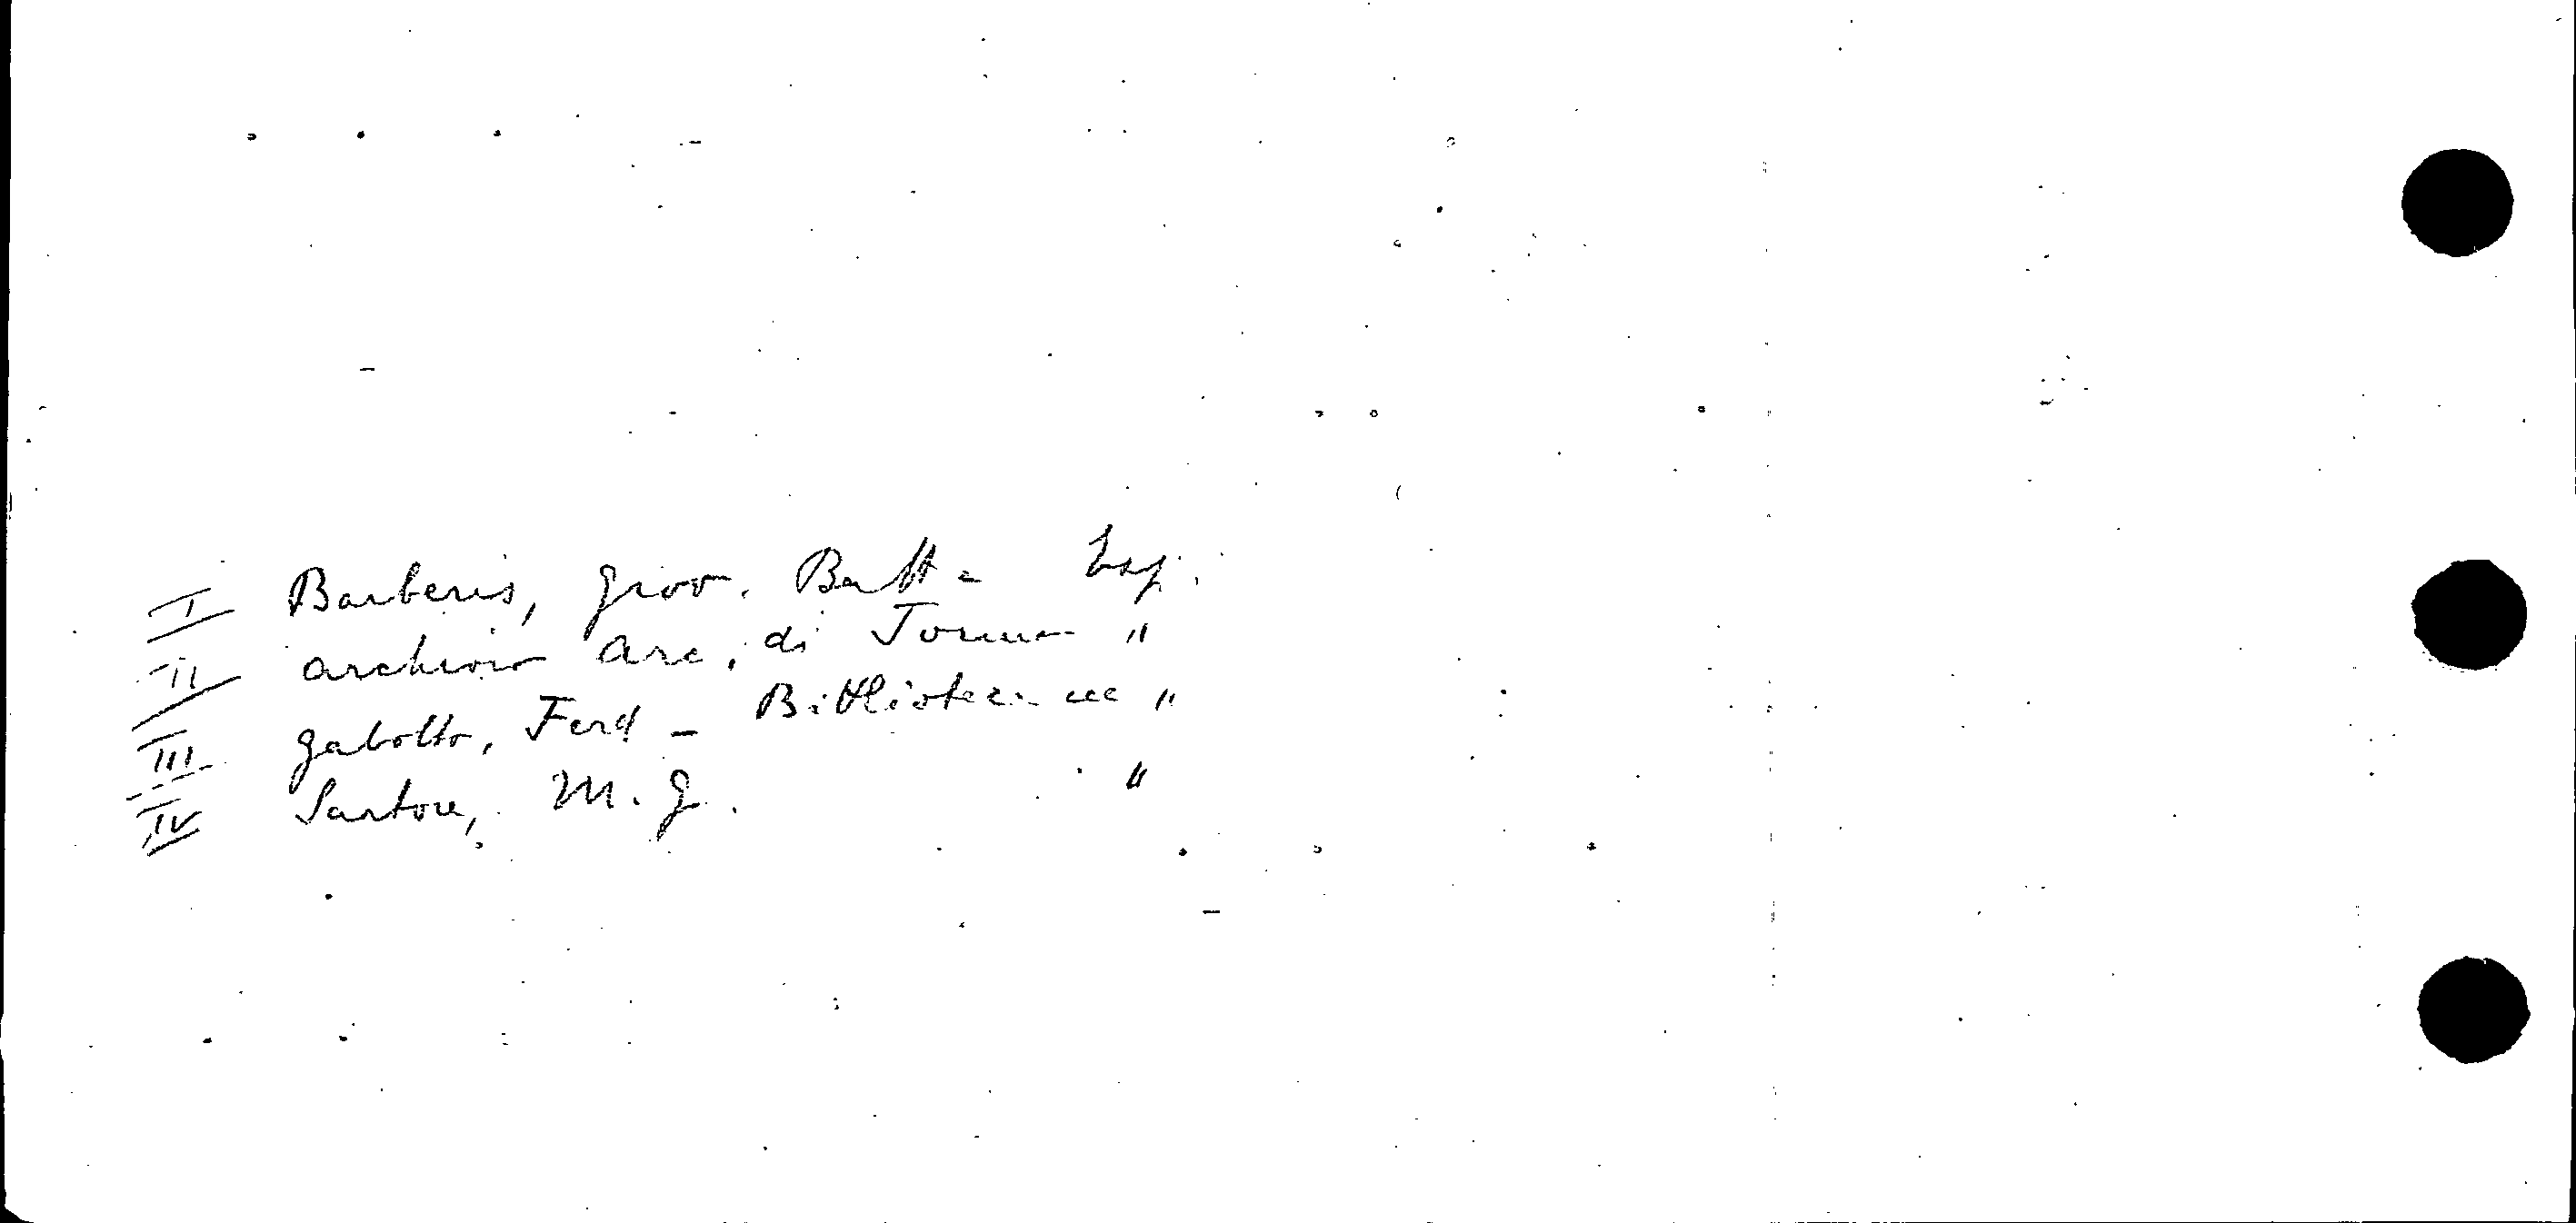 I Barberis, Giov. Batt.
II Archivio Arc. di Torino "
III Gabotto, Ferd - Biblioteca "
IV Sartore, M. G. "